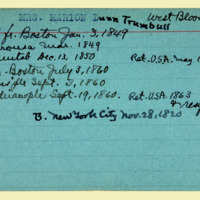 MRS. MARION Dunn Trumbull West Bloo
fr. Boston Jan. 3, 1849
rousa Mar. 1849
Dec. 13, 1850 Ret. U.S.A. May 1
Boston July 3, 1860
Sept. 5, 1860
rianople Sept. 19, 1860. Ret. U.S.A. 1863
B. New York City Nov. 28, 1820